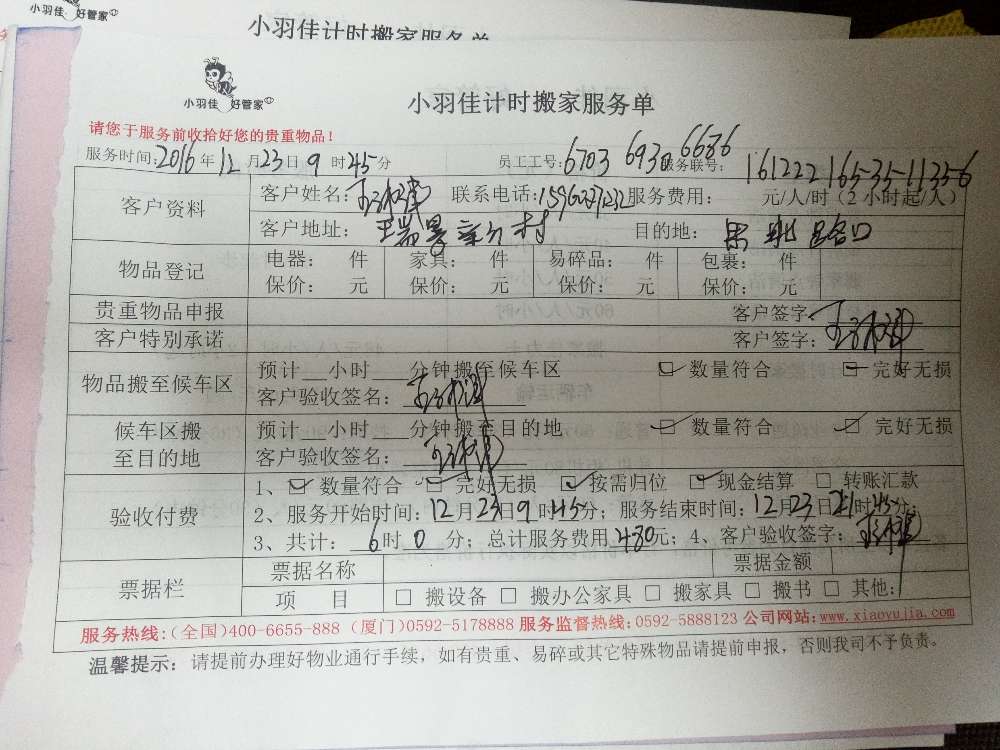 小羽佳 好管家
小羽佳计时搬家服务单
小羽佳 好管家
小羽佳计时搬家服务单
请您于服务前收拾好您的贵重物品！
服务时间：2016年12月23日9时45分 员工工号：6703 6930 6686 服务联号：161222 165-35-11356
客户资料 客户姓名： 联系电话： 服务费用： 元/人/时（2小时起/人）
客户地址： 村 目的地： 路口
物品登记 电器： 件 家具： 件 易碎品： 件 包裹： 件
保价： 元 保价： 元 保价： 元 保价： 元
贵重物品申报 客户签字：
客户特别承诺 客户签字：
物品搬至候车区 预计 小时 分钟搬至候车区 数量符合 完好无损
客户验收签名：
候车区搬至目的地 预计 小时 分钟搬至目的地 数量符合 完好无损
客户验收签名：
验收付费 1、 数量符合 完好无损 按需归位 现金结算 转账汇款
2、服务开始时间：12月23日9时45分；服务结束时间：12月23日 时45分；
3、共计：6时0分；总计服务费用480元；4、客户验收签字：
票据栏 票据名称 票据金额
项 目 搬设备 搬办公家具 搬家具 搬书 其他：
服务热线：（全国）400-6655-888（厦门）0592-5178888 服务监督热线：0592-5888123 公司网站：www.xiaoyujia.com
温馨提示：请提前办理好物业通行手续，如有贵重、易碎或其它特殊物品请提前申报，否则我司不予负责。